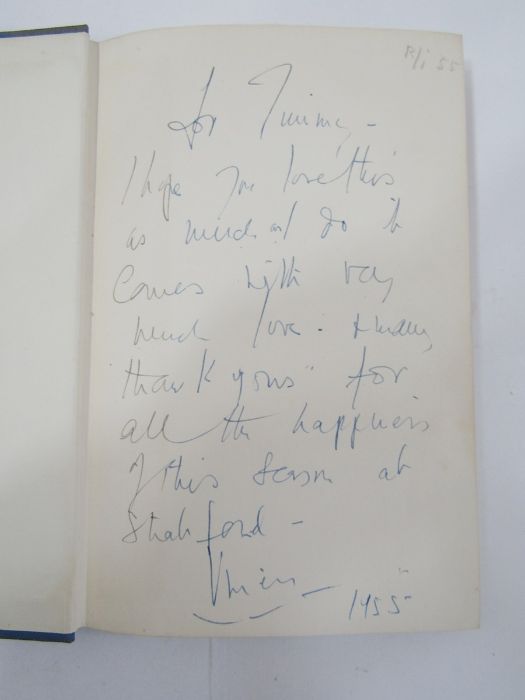 for Jimmy -
I hope you love this
as much as I do it
Comes with very
much love - & many
thank yous" for
all the happiness
of this season at
Stratford -
Vivien
1955